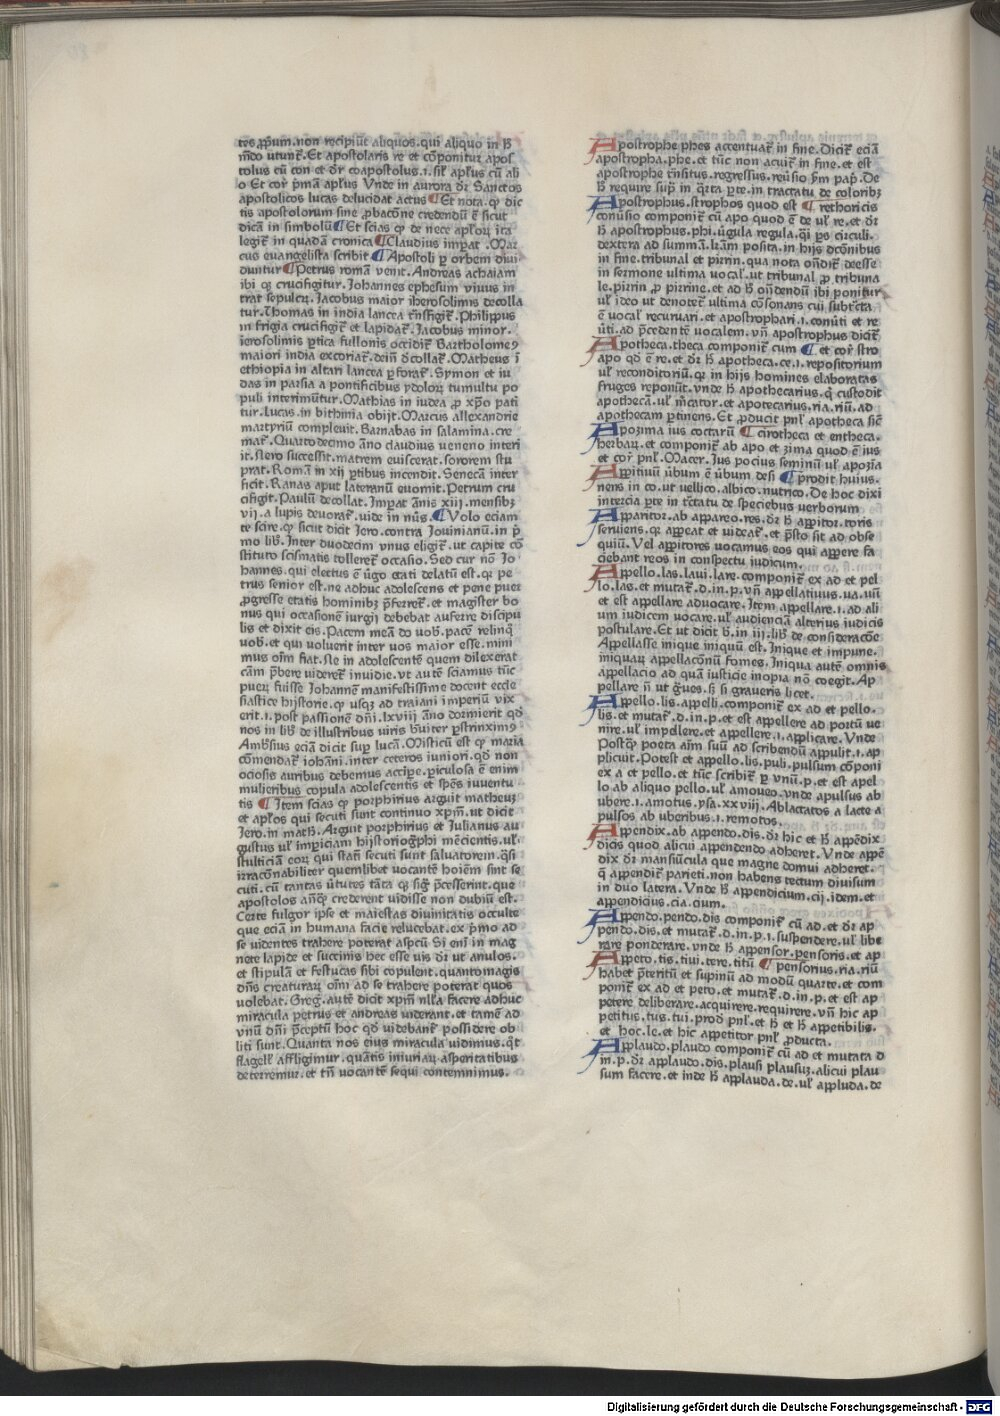 tes ꝓpͥum.non recipiūt aliquos.qui aliquo in ꝧ
mōdo utunt᷑.Et apostolaris re et cōponitur apos
tolus cū con et dr̄ coapostolus.i.sil̄ apl̄us cū ali
o Et cor᷑ pͥmam apl̄us Vnde in aurora dr̄ Sanctos
apostolicos lucas delucidat actus ¶Et nota.ꝙ dic
tis apostolorum sine ꝓbacōne credendū ē sicut
dicā in simbolū ¶Et scias ꝙ de nece apl̄oꝝ ita
legit᷑ in quadā cronica ¶Claudius imꝑat .Mar
cus euangelista scribit ¶Apostoli ꝑ orbem diui
duntur ¶Petrus romā venit.Andreas achaiam
ibi ꝙ crucifigitur.Johannes ephesum viuus in
trat sepulcꝝ.Jacobus maior iherosolimis decolla
tur.Thomas in india lancea tͣnsfigit᷑.Philippus
in frigia crucifigit᷑ et lapidat᷑.Jacobus minor.
ierosolimis ꝑtica fullonis occidit᷑ Bartholomeꝯ
maiori india excoriat᷑.dein̄ decollat᷑.Matheus ī
ethiopia in altari lancea ꝑforat᷑.Symon et iu
das in parsia a pontificibus ydoloꝝ tumultu po
puli interimūtur.Mathias in iudea ꝓ xp̄o pati
tur.Lucas.in bithinia obijt.Marcus allexandrie
martyriū compleuit.Barnabas in salamina.cre
mat᷑.Quartodecimo āno claudius ueneno interi
it.Nero successit.matrem euiscerat.sororem stu
prat.Romā in xij ꝑtibus incendit.Senecā inter
ficit.Ranas aput lateranū euomit.Petrum cru
cifigit.Paulū decollat.Imꝑat ānis xiij.mensibꝫ
vij.a lupis deuorat᷑.uide in nūs.¶Volo eciam
te scire.ꝙ sicut dicit Jero.contra Jovinianū.in pͥ
mo lib̄.Inter duodecim vnus eligit᷑.ut capite cō
stituto scismatis tolleret᷑ occasio.Sed cur nō Jo
hannes.qui electus ē ūgo etati delatū est.qꝛ pe
trus senior est.ne adhuc adolescens et pene puer
ꝓgresse etatis hominibꝫ pͥferret᷑.et magister bo
nus qui occasionē iurgij debebat auferre discipu
lis et dixit eis.Pacem meā do uob̄.pacē relinq̄
uob̄.et qui voluerit inter uos maior esse.mini
mus oīm fiat.Ne in adolescentē quem dilexerat
cām pͥbere uideret᷑ inuidie.vt autē sciamus tūc
pueꝝ fuisse Johannē manifestissime docent eccle
siastice hijstorie.ꝙ usqꝫ ad traiani imperiū vix
erit.i.post passionē dn̄i.lxviij āno dormierit qd̄
nos in lib̄ de illustribus uiris bͥuiter ꝑstrinximꝯ
Ambsius eciā dicit suꝑ lucā.Misticū est ꝙ maria
cōmendat᷑ iohāni.inter ceteros iuniori.qd̄ non
ociosis auribus debemus accipe.ꝑiculosa ē enim
mulieribus copula adolescentis et spēs iuuentu
tis ¶Item scias ꝙ porphirius arguit matheuꝫ
et apl̄os qui secuti sunt continuo xpm̄.ut dicit
Jero.in math̄.Arguit porphirius et Julianus au
gustus ul̄ imꝑiciam hijstoriog͛phi mēcientis.ul̄
stulticiā eoꝝ qui statī secuti sunt saluatorem.qͣsi
irracōnabiliter quemlibet vocantē hoīem sint se
cuti.cū tantas ūtutes tāta ꝙ sig͛ pͥcesserint.que
apostolos anͣqͥ crederent vidisse non dubiū est.
Certe fulgor ipse et maiestas diuinitatis occulte
que eciā in humana facie relucebat.ex pͥmo ad
se uidentes trahere poterat aspcū Si enī in mag
nete lapide et succinis hec esse uis dr̄ ut anulos.
et stipulā et festucas sibi copulent.quanto magis
dn̄s creaturaꝝ oīm ad se trahere poterat quos
volebat.Greg.autē dicit xpm̄ nl̄la facere adhuc
miracula petrus et andreas uiderant.et tamē ad
vnū dn̄i pͥceptū hoc qd̄ uidebant᷑ possidere ob
liti sunt.Quanta nos eius miracula vidimus.qͣt
flagell᷑ affligimur.quātis iniuriaꝝ asperitatibus
deterremur.et tn̄ vocantē sequi contemnimus.
Apostrophe.phes accentuat᷑ in fine.Dicit᷑ eciā
apostropha.phe.et tūc non acuit᷑ in fine.et est
apostrophe tͣnsitus.regressus.reūsio pͥm pap̄.De
ꝧ require supͣ in q̄rta ꝑte.in tractatu de coloribꝫ
Apostrophus.strophos quod est ¶ rethoricis
conūsio componit᷑ cū apo quod ē de ul̄ re.et dr̄
ꝧ apostrophus.phi.ūgula regula.qͥi ꝑs circuli.
dextera ad summā.lr̄am posita.in hijs dcōnibus
in fine.tribunal et pizrin.qua nota on̄dit᷑ deesse
in sermone ultima vocal̄.ut tribunal ꝓ tribuna
le.pizrin ꝓ pizrine.et ad ꝧ on̄dendū ibi ponitur
ul̄ ideo ut denotet᷑ ultima cōsonans cui subtͣcta
ē vocal̄ recuruari.et apostrophari.i.conūti et re
ūti.ad pͥcedentē vocalem.vn̄ apostrophus dicit᷑
Apotheca.theca componit᷑ cum ¶ et cor᷑ stro
apo qd̄ ē re.et dr̄ ꝧ apotheca.ce.i.repositorium
ul̄ reconditoriū.qꝛ in hijs homines elaboratas
fruges reponūt.vnde ꝧ apothecarius.qͥ custodit
apothecā.ul̄ mͥcator.et apotecarius.ria.riū.ad
apothecam ꝑtinens.Et ꝓducit pnl̄ apotheca sic̄
Apozima ius coctarū ¶ cirotheca et entheca.
herbaꝝ.et componit᷑ ab apo et zima quod ē ius
et cor᷑ pnl̄.Macer.Ius pocius seminū ul̄ apozīa
Appitiuū ūbum ē ūbum desi ¶ prodit huius.
nens in co.ut vellico.albico.nutrico.De hoc dixi
in tercia ꝑte in tͣctatu de speciebus verborum
Apparitor.ab appareo.res.dr̄ ꝧ apꝑitor.toris
seruiens.qꝛ appeat et videat᷑.et pͥsto sit ad obse
quiū.Vel apꝑitores vocamus eos qui appere fa
ciebant reos in conspectu iudicum.
Appello.las.laui.lare.componit᷑ ex ad et pel
lo.las.et mutat᷑.d.in.p.vn̄ appellatiuus.ua.uū
et est appellare aduocare.Item appellare.i.ad ali
um iudicem vocare.ul̄ audienciā alterius iudicis
postulare.Et ut dicit b̄.in iij.lib̄ de consideracōe
Appellasse inique iniquū est.Inique et impune.
iniquaꝝ appellacōnū fomes.Iniqua autē omnis
appellacio ad quā iusticie inopia nō coegit.Ap
pellare n̄ ut g͛ues.ꝧ si graueris licet.
Appello.lis.appelli.componit᷑ ex ad et pello.
lis.et mutat᷑.d.in.p.et est appellere ad portū ue
nire.ul̄ impellere.et appellere.i.applicare.Vnde
Postqͣ poeta aīm suū ad scribendū appulit.i.ap
plicuit.Potest et appello.lis.puli.pulsum cōponi
ex a et pello.et tūc scribit᷑ ꝑ vnū.p.et est apel
lo ab aliquo pello.ul̄ amoueo.vnde apulsus ab
ubere.i.amotus.psa.xxviij.Ablactatos a lacte a
pulsos ab uberibus.i.remotos.
Appendix.ab appendo.dis.dr̄ hic et ꝧ appēdix
dicis quod alicui appendendo adheret.Vnde appē
dix dr̄ mansiūcula que magne domui adheret.
qͥ appendit᷑ parieti.non habens tectum diuisum
in duo latera.Vnde ꝧ appendicium.cij.idem.et
appendicius.cia.cium.
Appendo.pendo.dis componit᷑ cū ad.et dr̄ ap
pendo.dis.et mutat᷑.d.in.p.i.suspendere.ul̄ libe
rare ponderare.vnde ꝧ appensor.pensoris.et ap
Appeto.tis.tiui.tere.titū ¶ pensorius.ria.riū
habet pͥteritū et supinū ad modū quarte.et com
ponit᷑ ex ad et peto.et mutat᷑.d.in.p.et est ap
petere deliberare.acquirere.requirere.vn̄ hic ap
petitus.tus.tui.prod̄ pnl̄.et ꝧ et ꝧ appetibilis.
et hoc.le.et hic appetitor pnl̄ ꝓducta.
Applaudo.plaudo componit᷑ cū ad et mutata d
in.p.dr̄ applaudo.dis.plausi plausuꝫ.alicui plau
sum facere.et inde ꝧ applauda.de.ul̄ appluda.de
Digitalisierung gefördert durch die Deutsche Forschungsgemeinschaft - DFG